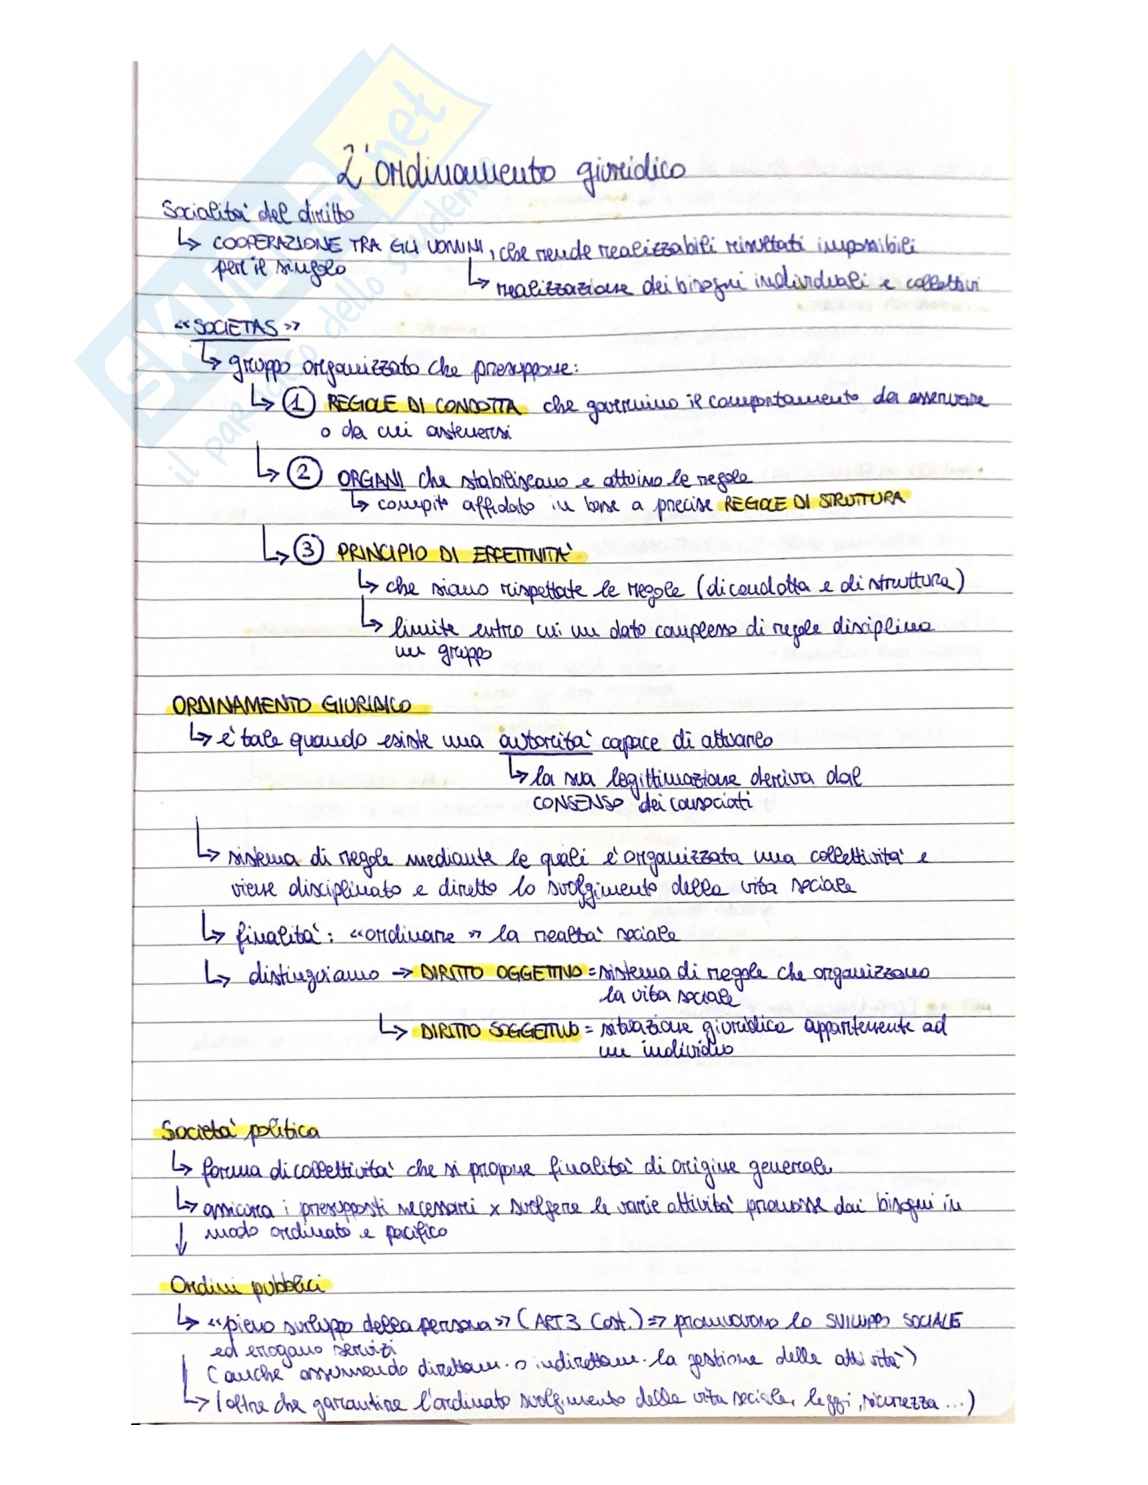 L'ordinamento giuridico
Socialità del diritto
↳ COOPERAZIONE TRA GLI UOMINI, che rende realizzabili risultati impossibili
per il singolo
↳ realizzazione dei bisogni individuali e collettivi
"SOCIETAS"
↳ gruppo organizzato che presuppone:
↳ ① REGOLE DI CONDOTTA che governino il comportamento da osservare
o da cui astenersi
↳ ② ORGANI che stabiliscano e attuino le regole
↳ compito affidato in base a precise REGOLE DI STRUTTURA
↳ ③ PRINCIPIO DI EFFETTIVITÀ
↳ che siano rispettate le regole (di condotta e di struttura)
↳ limite entro cui un dato complesso di regole disciplina
un gruppo
ORDINAMENTO GIURIDICO
↳ è tale quando esiste una autorità capace di attuarlo
↳ la sua legittimazione deriva dal
CONSENSO dei consociati
↳ sistema di regole mediante le quali è organizzata una collettività e
viene disciplinato e diretto lo svolgimento della vita sociale
↳ finalità: "ordinare" la realtà sociale
↳ distinguiamo → DIRITTO OGGETTIVO = sistema di regole che organizzano
la vita sociale
↳ DIRITTO SOGGETTIVO = situazione giuridica appartenente ad
un individuo
Società politica
↳ forma di collettività che si propone finalità di origine generale
↳ assicura i presupposti necessari x svolgere le varie attività promosse dai bisogni in
↓ modo ordinato e pacifico
Ordini pubblici
↳ "pieno sviluppo della persona" (ART3 Cost.) => promuovono lo SVILUPPO SOCIALE
ed erogano servizi
(anche assumendo direttam. o indirettam. la gestione delle attività)
↳ (oltre che garantire l'ordinato svolgimento della vita sociale, leggi, sicurezza ...)
SKUOLA.net
il paradiso dello studente